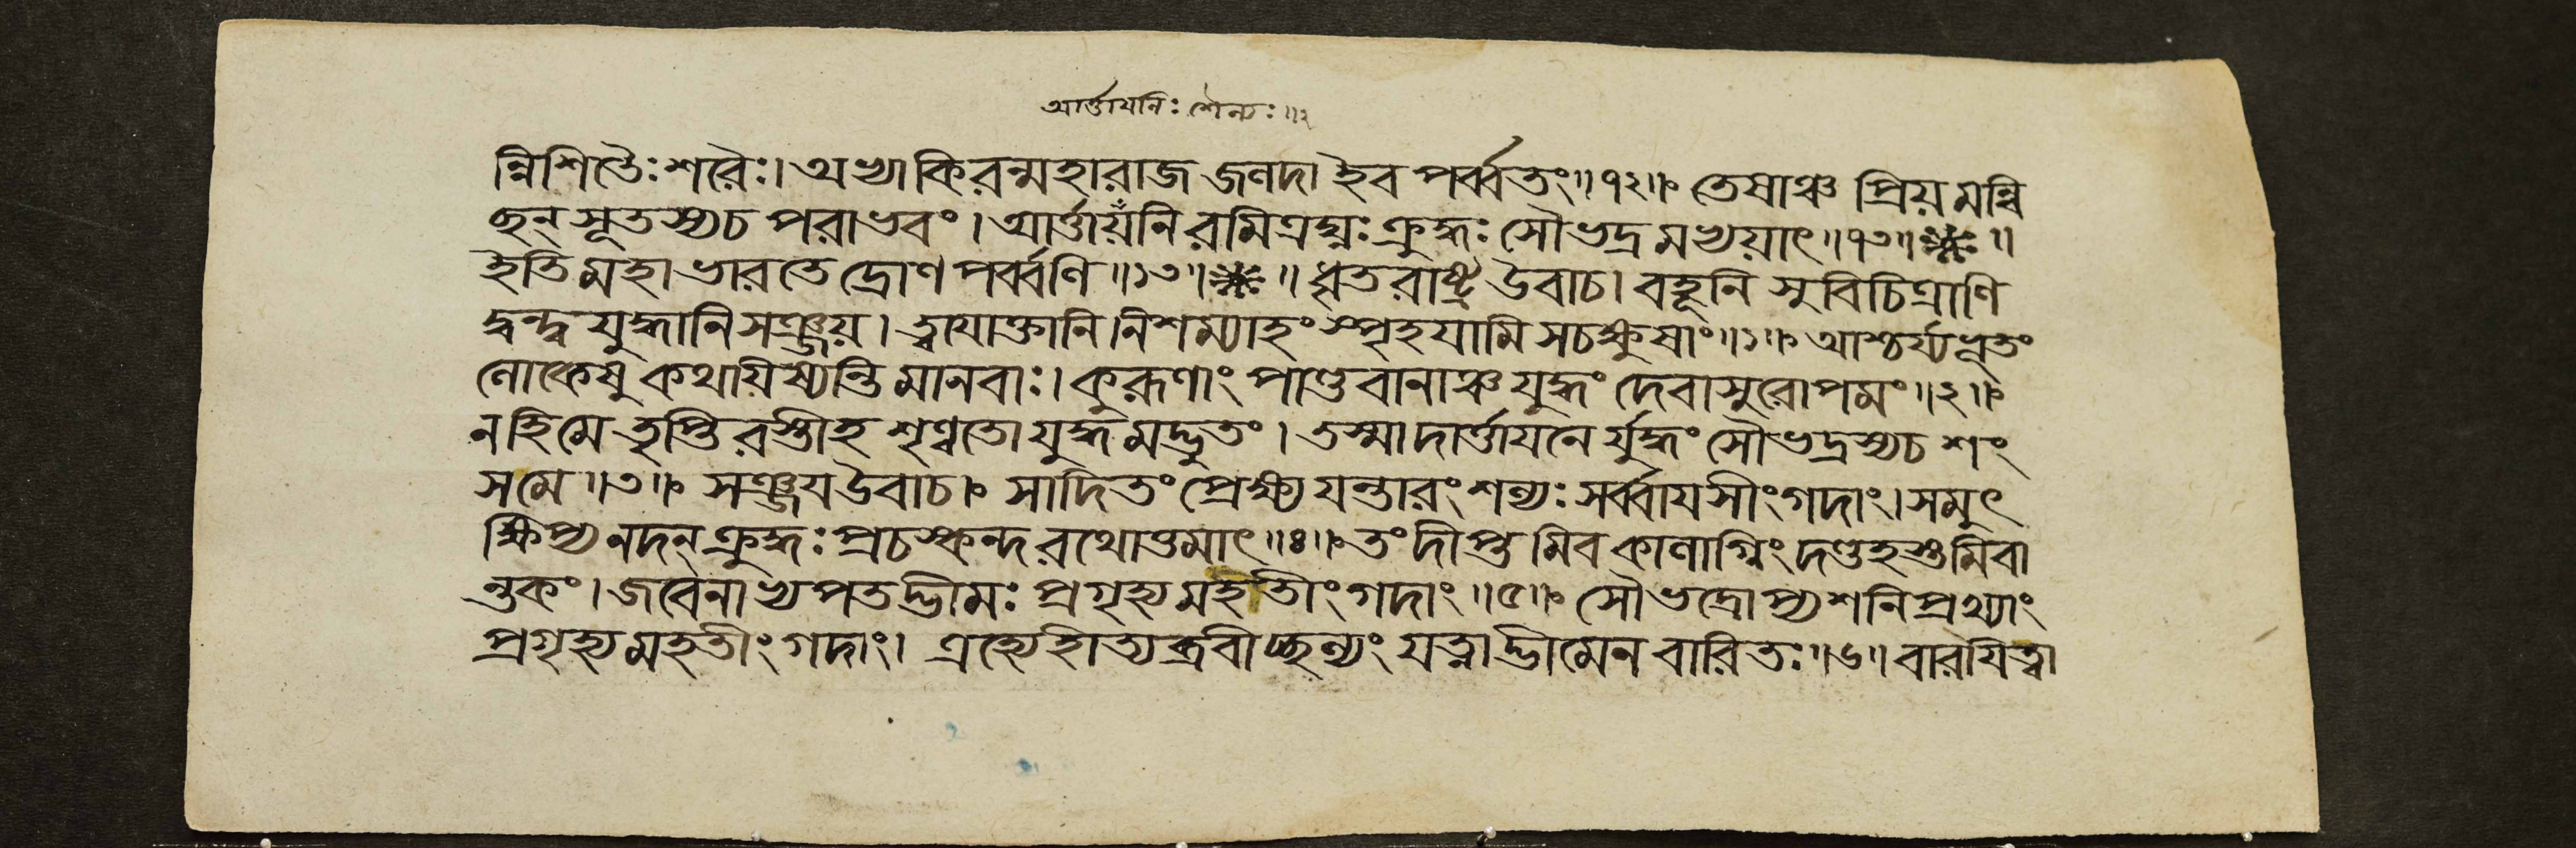 আর্ত্তাযনিঃ শৈল্যঃ ॥২
ন্নিশিতৈঃ শরৈঃ। অভ্যাকিরন্মহারাজ জলদা ইব পর্ব্বতং॥১২॥ তেষাঞ্চ প্রিয়মন্বি
ছন্ সূতস্যচ পরাভবং। আর্ত্তায়ঁনিরমিত্রঘ্নঃ ক্রুদ্ধঃ সৌভদ্রমভ্যয়াৎ॥১৩॥
ইতি মহাভারতে দ্রোণপর্ব্বণি॥১৩॥ ধৃতরাষ্ট্র উবাচ। বহূনি সুবিচিত্রাণি
দ্বন্দ্বযুদ্ধানি সঞ্জয়। ত্বাযোক্তানি নিশম্যাহং স্পৃহযামি সচক্ষুষাং॥১॥ আশ্চর্য্যভূতং
লোকেষু কথায়িষ্যন্তি মানবাঃ। কুরূণাং পাণ্ডবানাঞ্চ যুদ্ধং দেবাসুরোপমং॥২॥
নহি মে তৃপ্তিরস্তীহ শৃণ্বতো যুদ্ধমদ্ভুতং। তস্মাদার্ত্তাযনের্যুদ্ধং সৌভদ্রস্যচ শং
সমে॥৩॥ সঞ্জয উবাচ॥ সাদিতং প্রেক্ষ্য যন্তারং শল্যঃ সর্ব্বাযসীং গদাং। সমুৎ
ক্ষিপ্য নদন্ ক্রুদ্ধঃ প্রচস্কন্দ রথোত্তমাৎ॥৪॥ তং দীপ্তমিব কালাগ্নিং দণ্ডহস্তমিবা
ন্তকং। জবেনাভ্যপতদ্ভীমঃ প্রগৃহ্য মহতীং গদাং॥৫॥ সৌভদ্রোপ্যশনিপ্রখ্যাং
প্রগৃহ্য মহতীং গদাং। এহ্যেহীত্যব্রবীচ্ছল্যং যত্নাদ্ভীমেন বারিতঃ॥৬॥ বারযিত্বা